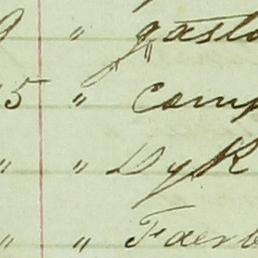 9 " gasto
15 " Comp
" " Dyk
" " Faerb